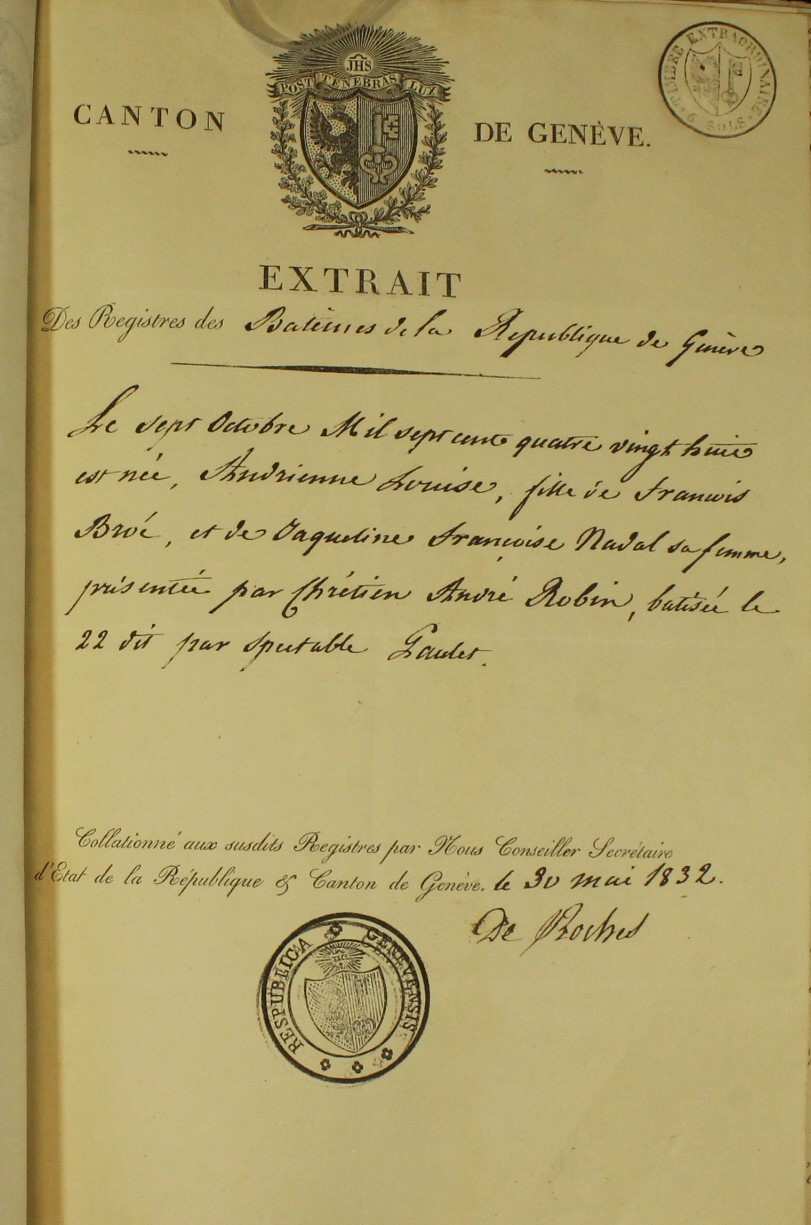 JHS
POST TENEBRAS LUX
TIMBRE EXTRAORDINAIRE
6 SOLS
CANTON DE GENÈVE.
EXTRAIT
Des Registres des Batêmes de la Republique de Genève
Le sept Octobre Mil sept cent quatre vingt huit
est née, Andrienne Louise, fille de François
Broé, et de Jaqueline Françoise Nadal sa femme,
présentée par Chrétien André Robin, batisée le
22 dit par spectable
Collationné aux susdits Registres par Nous Conseiller Secrétaire
d'Etat de la République & Canton de Genève. le 30 mai 1832.
De Roches
RESPUBLICA GENEVENSIS